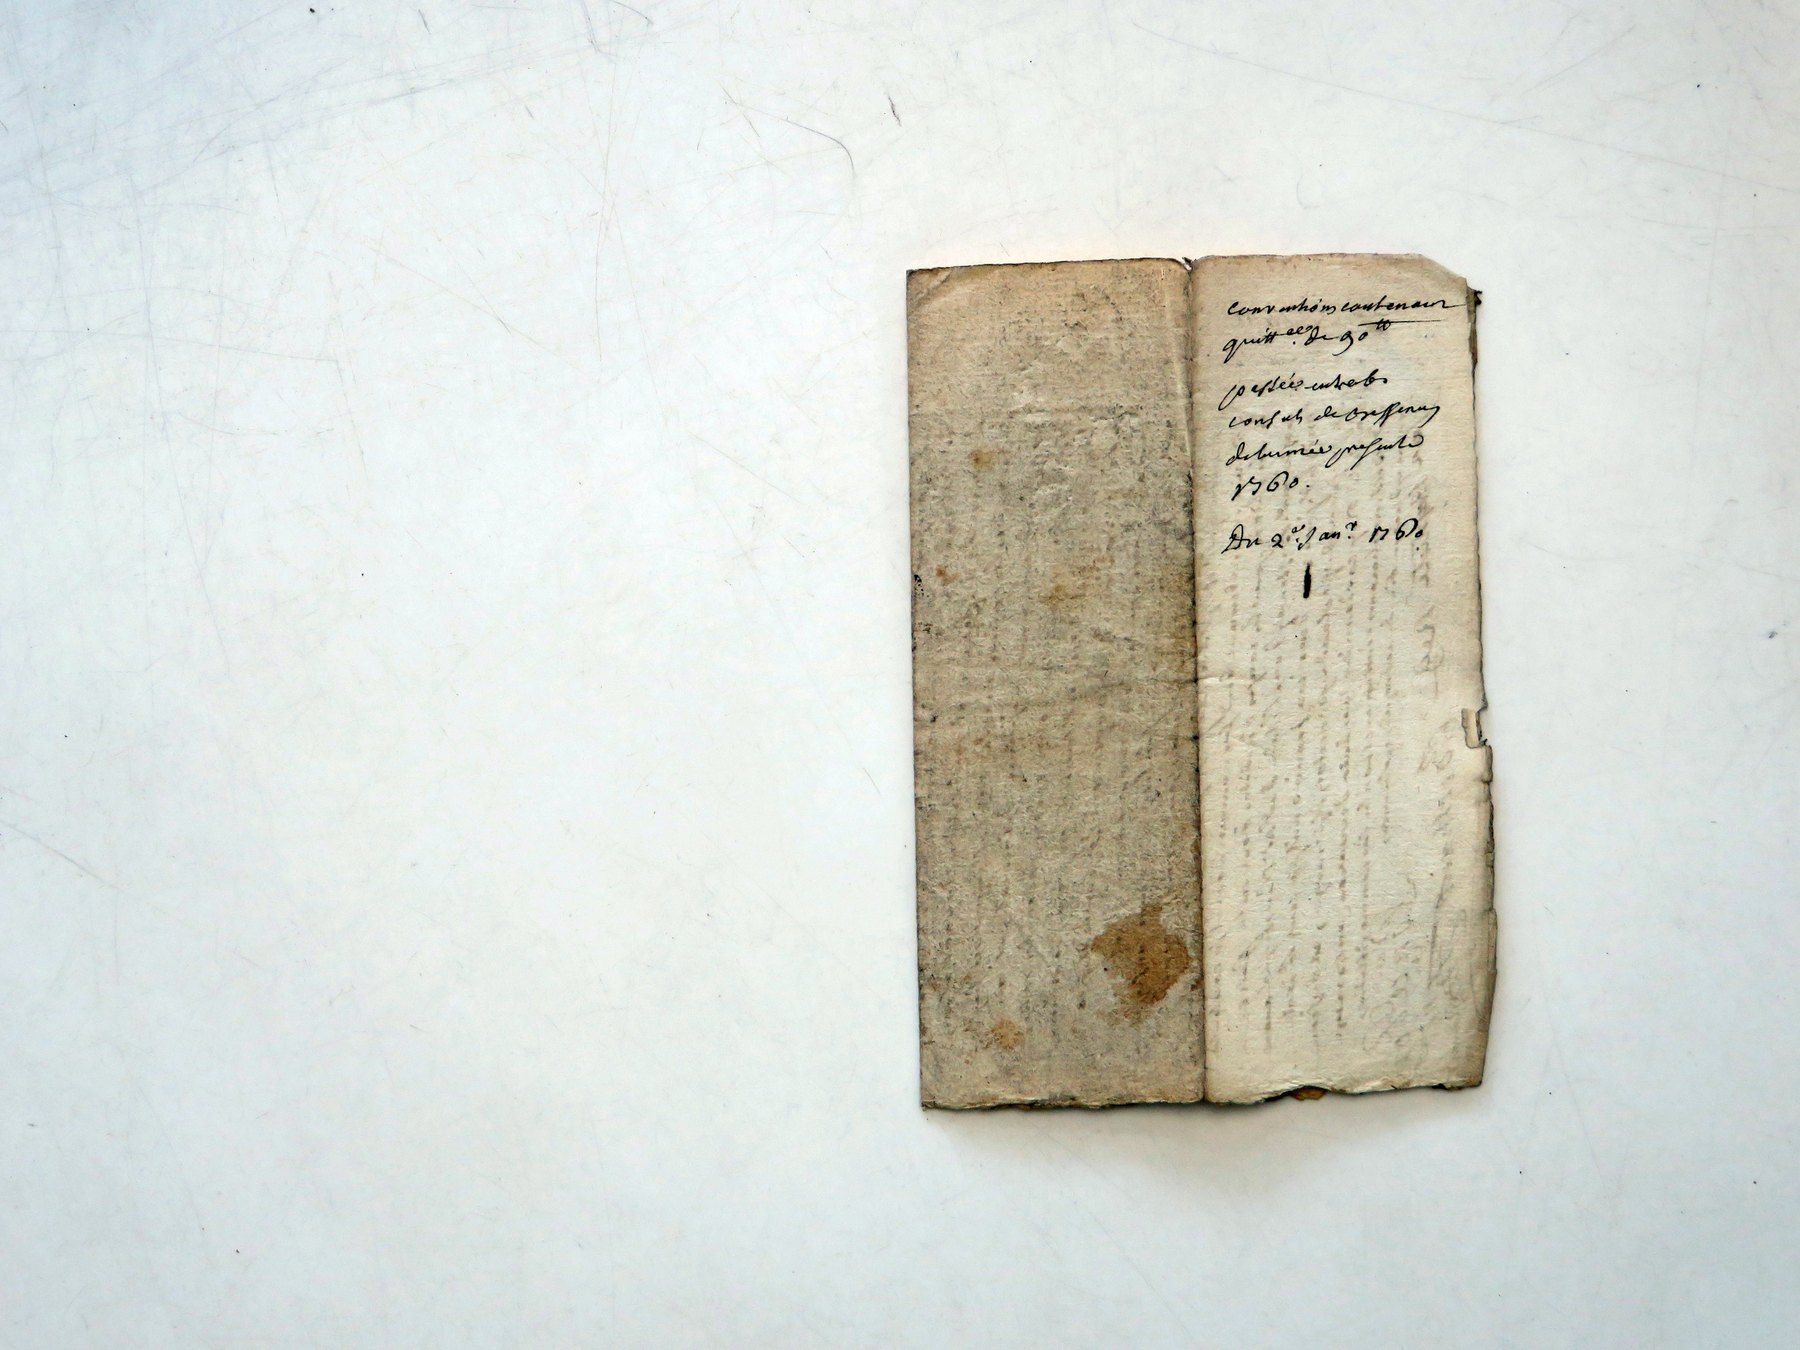 conventions contenant
quitt.ce de 90 tt
passées entre les
consuls de
de l'année présente
1760.
Du 2e. Janr. 1760.